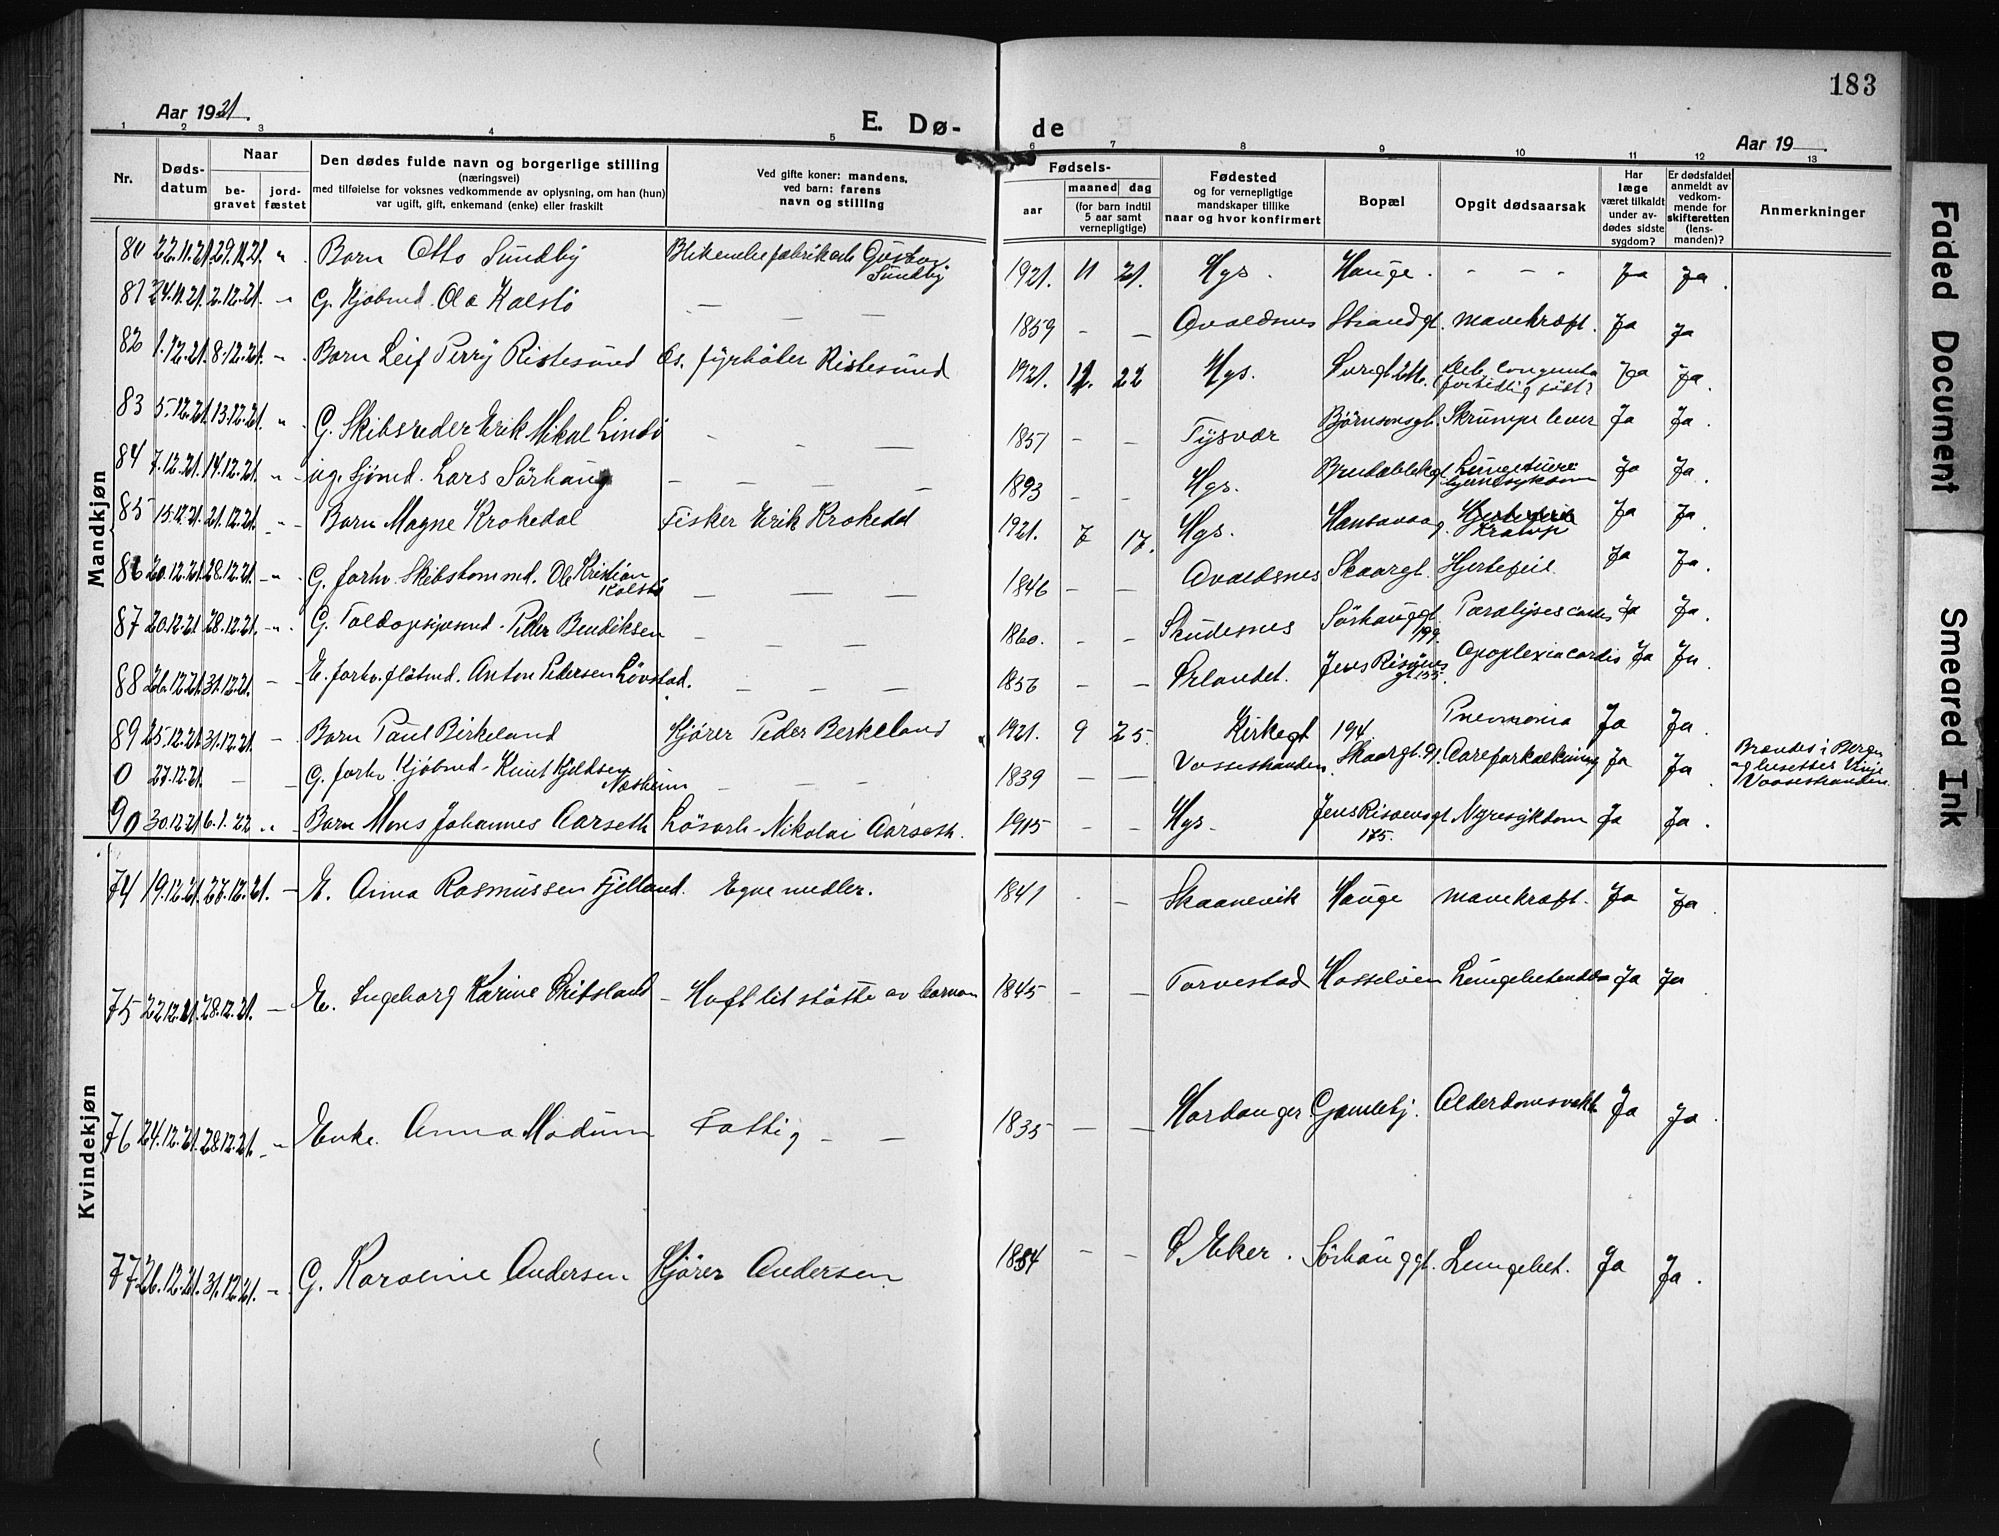 183
Aar 1921.
E. Dø-
de
Aar 19
1 2 3 4 5 6 7 8 9 10 11 12 13
Nr.
Døds-
datum
Naar
be-
gravet
jord-
fæstet
Den dødes fulde navn og borgerlige stilling
(næringsvei)
med tilføielse for voksnes vedkommende av oplysning, om han (hun)
var ugift, gift, enkemand (enke) eller fraskilt
Ved gifte koner: mandens,
ved barn: farens
navn og stilling
Fødsels-
aar
maaned
dag
(for barn indtil
5 aar samt
vernepligtige)
Fødested
og for vernepligtige
mandskaper tillike
naar og hvor konfirmert
Bopæl
Opgit dødsaarsak
Har
læge
været tilkaldt
under av-
dødes sidste
sygdom?
Er dødsfaldet
anmeldt av
vedkom-
mende for
skifteretten
(lens-
manden)?
Anmerkninger
Mandkjøn
80 22.11.21 29.11.21. " Barn Otto Sundby Gustav Sundby 1921. 11 21. Hgs. Hauge. - - - Ja Ja.
81 24.11.21. 2.12.21. - G. Kjøbmd. Ola Kalstø — — — 1859 - — Avaldsnes Strandgt. Mavekræft. Ja Ja
82 1.12.21. 8.12.21. " Barn Leif Perry Ristesund fyrbøter Ristesund 1921. 12. 22 Hgs. Ja Ja.
83 5.12.21. 13.12.21. " G. Skibsreder Erik Mikal Lindø - - - 1857 - - Tysvær Bjørnsonsgt. Skrumpelever Ja Ja.
84 7.12.21. 14.12.21. " ug. Sjømd. Lars Sørhaug - - - 1893 - - Hgs. Ja Ja.
85 15.12.21. 21.12.21. - Barn Magne Krokedal Fisker Erik Krokedal 1921. 7 17. Hgs. Ja Ja.
86 20.12.21. 28.12.21. - G. forhv. Skibstømmd. Ole Kristian Kalstø — — — 1846 - — Avaldsnes Skaargt. Hjertefeil. Ja Ja.
87 20.12.21 28.12.21. - G. Toldopsynsmd. Peder Bendiksen - - - 1860. - - Skudesnes Sørhauggt 199. Paralyses cordis Ja Ja.
88 26.12.21 31.12.21. - E. forhv. fløtmd. Anton Pedersen Løvstad. - - - 1856 - — Ørlandet. Jens Risøens gt 155. Apoplexia cordis Ja Ja.
89 25.12.21 31.12.21. - Barn Paul Birkeland Kjører Peder Berkeland 1921. 9 25. Kirkegt 194. Pneumonia Ja Ja.
0 27.12.21. — - G. forhv. Kjøbmd. Knut Kjeldsen Næsheim - - - 1839 — — Vossestranden. Skaargt. 91. Aareforkalkning Ja Ja. Brændes i Bergen
Vossestranden.
90 30.12.21 6.1.22 " Barn Mons Johannes Aarseth Løsarb. Nikolai Aarseth. 1915 - - Hgs. Jens Risøensgt 175. Nyresykdom Ja Ja.
Kvindekjøn
74 19.12.21. 27.12.21. - E. Anna Rasmussen Fjelland. Egne midler. 1841 - - Skaanevik Hauge Mavekræft. Ja Ja.
75 22.12.21. 28.12.21. — E. Ingeborg Karine - Havt litt støtte av barna 1845 - — Torvestad Hasseløen Ja Ja
76 24.12.21. 28.12.21. - Enke. Anna Modum Fattig - - 1835 — — Hardanger Gamlehj. Ja Ja.
77 26.12.21. 31.12.21. - G. Karoline Andersen Kjører Andersen 1854 - - Ø. Eker. Sørhauggt. Lungebet. Ja Ja.
Faded Document
Smeared Ink